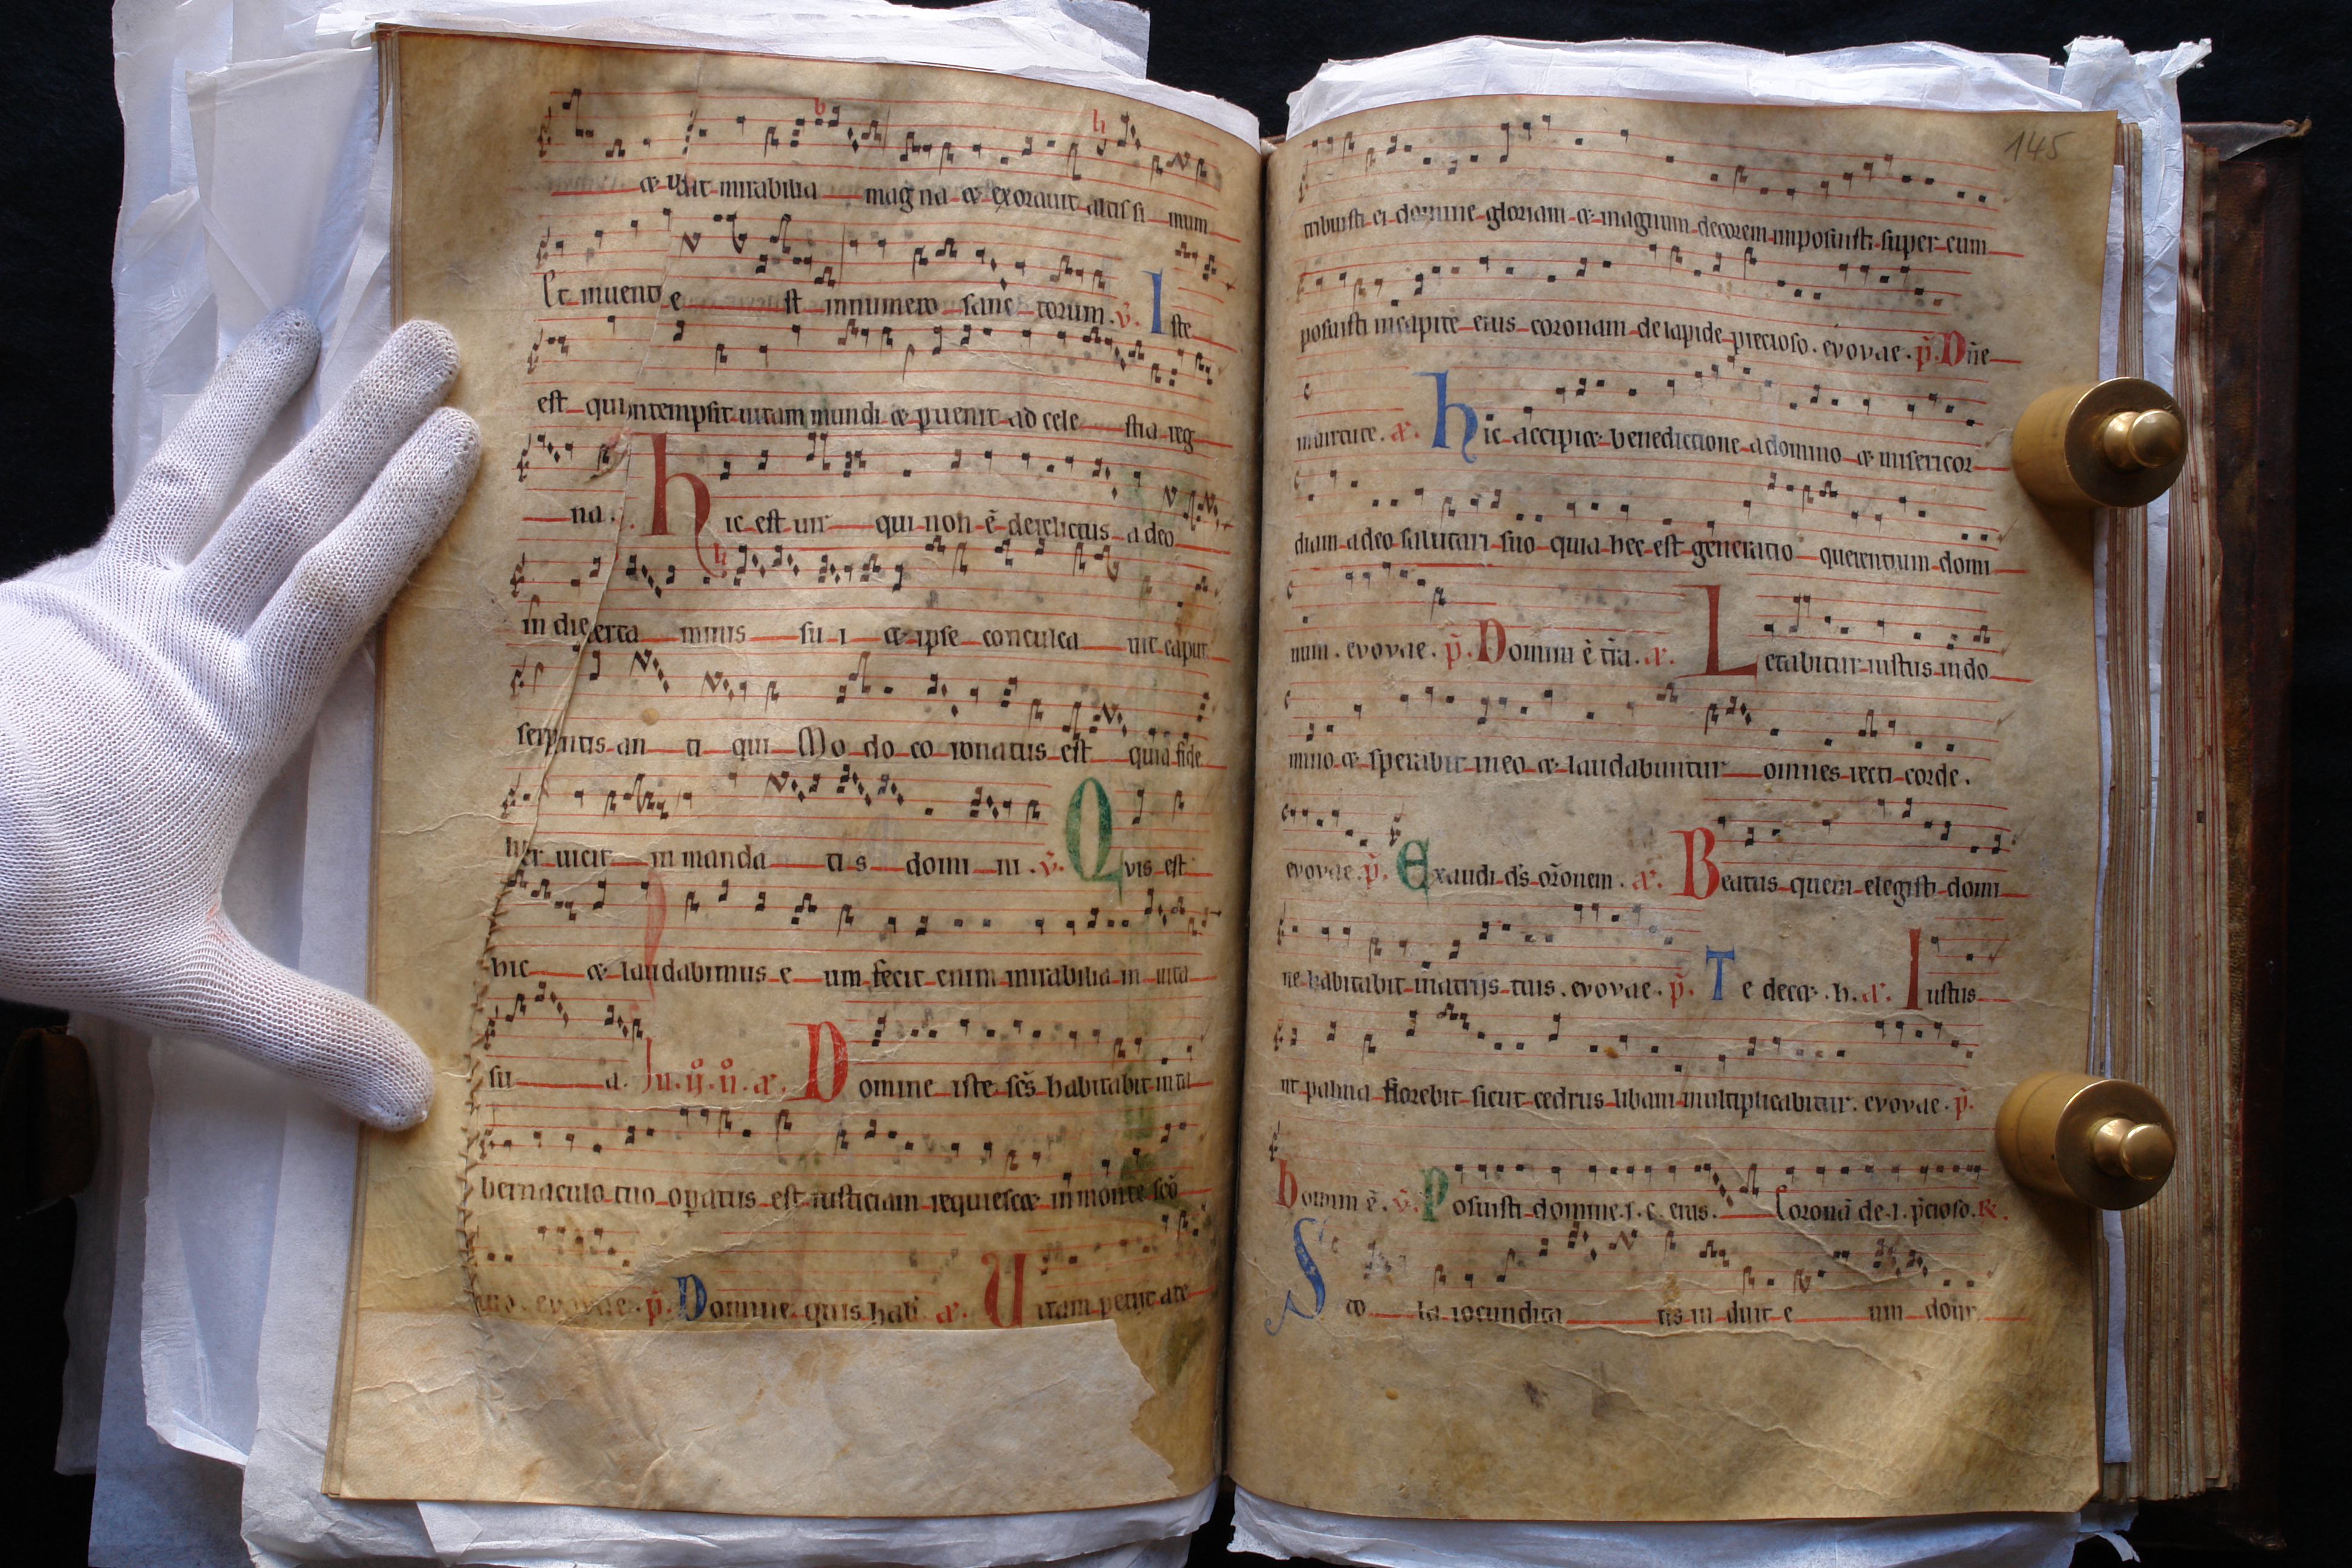 & fecit mirabilia mag na & exorauit altissi mum
Et inuent e st innumero sanc torum. v. Iste
est qui contempsit uitam mundi & puenit ad cele stia reg
na. Hic est uir qui non ē derelictus a deo
in die certa minis su i & ipse conculca uit caput
serpntis an ti qui Modo co ronatus est quia fide
liter uicit in manda ti s domi ni. v. Qvis est
hic & laudabimus e um fecit enim mirabilia in uita
su a. Domine iste scs habitabit in ta
bernaculo tuo opatus est iusticiam requiescet in monte sco
tuo. evovae. p. Domine quis hab a. Vitam petijt a te
145
tribuisti ei domine gloriam & magnum decorem imposuisti super eum
posuisti in capite eius coronam de lapide precioso. evovae. p. Dne
in uirtute. a. hic accipiet benedictione a domino & misericor
diam a deo salutari suo quia hec est generatio querentium domi
num. evovae. p. Domini ē tra. a. Letabitur iustus in do
mino & sperabit in eo & laudabuntur omnes recti corde.
evovae. p. Exaudi ds oronem. a. Beatus quem elegisti domi
ne habitabit in atrijs tuis. evovae. p. Te decet. h. a. Iustus
ut palma florebit sicut cedrus libani multiplicabitur. evovae. p.
Domini ē. v. Posuisti domine. s. c. eius. Coronā de. l. pcioso. R.
Sto la iocundita tis in duit e um domi